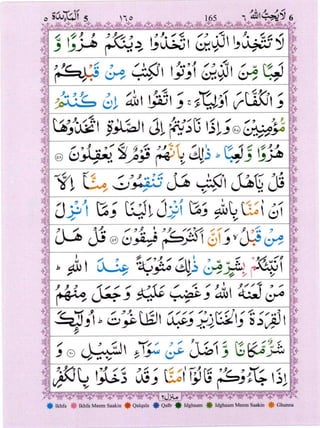 ٥ اَلْمَآئِدَة 5 ١٦٥ 165 ٦ لَا يُحِبُّ اللهُ 6
لَا تَتَّخِذُوا الَّذِيْنَ اتَّخَذُوْا دِيْنَكُمْ هُزُوًا وَّ
لَعِبًا مِّنَ الَّذِيْنَ اُوْتُوا الْكِتٰبَ مِنْ قَبْلِكُمْ
وَ الْكُفَّارَ اَوْلِيَآءَ ۚ وَ اتَّقُوا اللهَ اِنْ كُنْتُمْ
مُّؤْمِنِيْنَ ۝ وَ اِذَا نَادَيْتُمْ اِلَى الصَّلٰوةِ اتَّخَذُوْهَا
هُزُوًا وَّ لَعِبًا ؕ ذٰلِكَ بِاَنَّهُمْ قَوْمٌ لَّا يَعْقِلُوْنَ ۝
قُلْ يٰۤاَهْلَ الْكِتٰبِ هَلْ تَنْقِمُوْنَ مِنَّاۤ اِلَّاۤ
اَنْ اٰمَنَّا بِاللهِ وَ مَاۤ اُنْزِلَ اِلَيْنَا وَ مَاۤ اُنْزِلَ
مِنْ قَبْلُ ۙ وَ اَنَّ اَكْثَرَكُمْ فٰسِقُوْنَ ۝ قُلْ هَلْ
اُنَبِّئُكُمْ بِشَرٍّ مِّنْ ذٰلِكَ مَثُوْبَةً عِنْدَ اللهِ ؕ
مَنْ لَّعَنَهُ اللهُ وَ غَضِبَ عَلَيْهِ وَ جَعَلَ مِنْهُمُ
الْقِرَدَةَ وَ الْخَنَازِيْرَ وَ عَبَدَ الطَّاغُوْتَ ؕ اُولٰٓئِكَ
شَرٌّ مَّكَانًا وَّ اَضَلُّ عَنْ سَوَآءِ السَّبِيْلِ ۝ وَ
اِذَا جَآءُوْكُمْ قَالُوْۤا اٰمَنَّا وَ قَدْ دَّخَلُوْا بِالْكُفْرِ
منزل ٢
Ikhfa Ikhfa Meem Saakin Qalqala Qalb Idghaam Idghaam Meem Saakin Ghunna